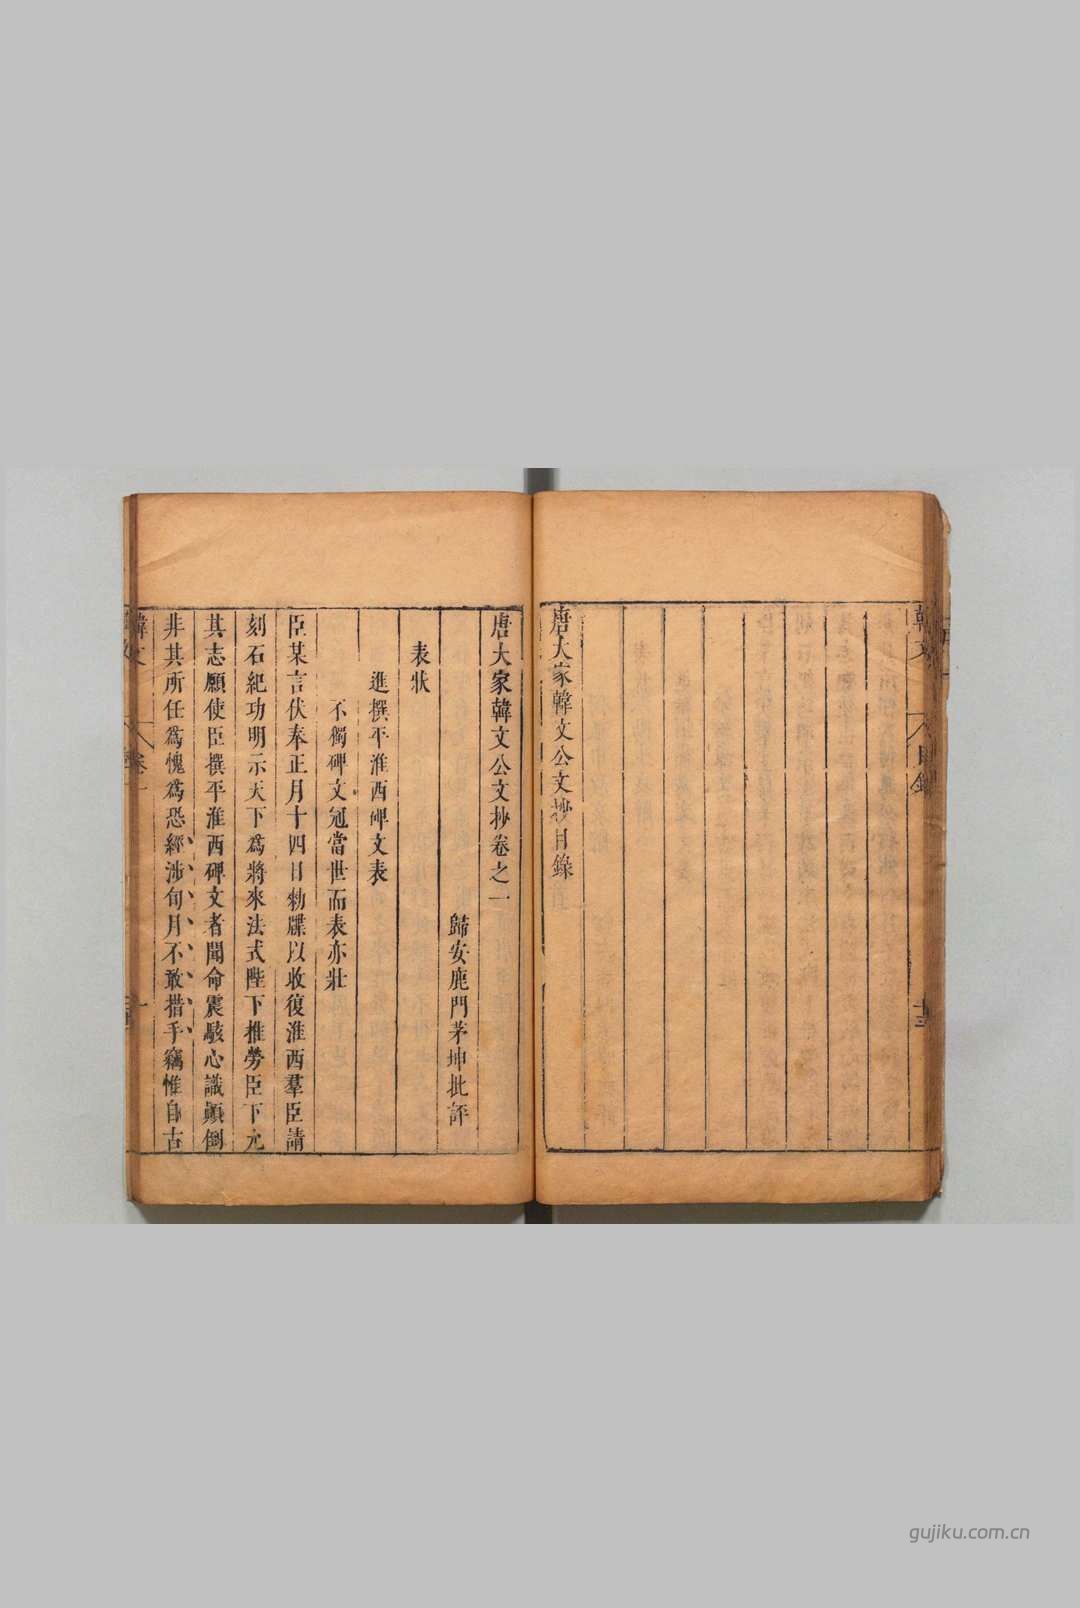 唐大家韓文公文抄目錄
唐大家韓文公文抄卷之一
歸安鹿門茅坤批評
表狀
進撰平淮西碑文表
不獨碑文冠當世而表亦壯
臣某言伏奉正月十四日勅牒以收復淮西羣臣請
刻石紀功明示天下爲將來法式陛下推勞臣下允
其志願使臣撰平淮西碑文者聞命震駭心識顛倒
非其所任爲愧爲恐經涉旬月不敢措手竊惟自古
韓文
卷一
一
gujiku.com.cn